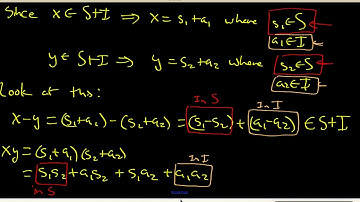 Since x ∈ S+I ⇒ x = s₁+a₁ where s₁∈S
a₁∈I
y ∈ S+I ⇒ y = s₂+a₂ where s₂∈S
a₂∈I
Look at this:
In S In I
x-y = (s₁+a₂) - (s₂+a₂) = (s₁-s₂) + (a₁-a₂) ∈ S+I
xy = (s₁+a₁)(s₂+a₂) In I
= s₁s₂ + a₁s₂ + s₁a₂ + a₁a₂
in S